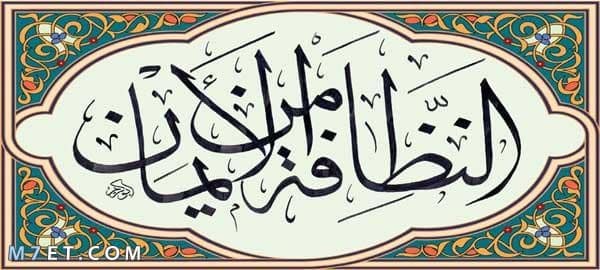 النَّظَافة من الأيمان
M7ET.COM